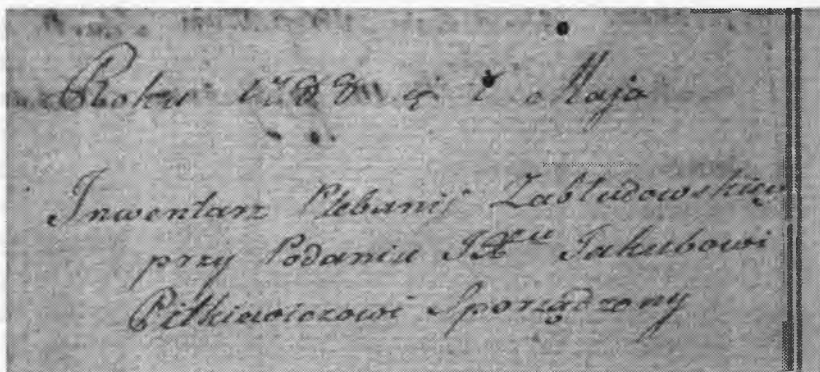 Roku 1788 d 1 Maja
Inwentarz Plebanij Zabłudowskiey
przy Podaniu JXu Jakubowi
Pitkiewiczowi Sporządzony